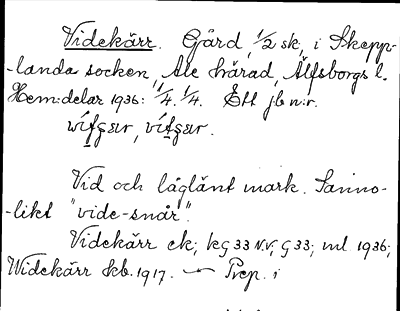 Videkärr. Gård, 1/2 sk, i Skepp-
-landa socken, Ale härad, Älfsborgs l.
Hem:delar 1936: 1/4. 1/4. Ett jb n:r.
Vid och låglänt mark. Sanno-
-likt "vide-snår".
Videkärr ek; kG 33 N.V.; G 33; ml 1936;
Widekärr kb. 1917. — Prep. i